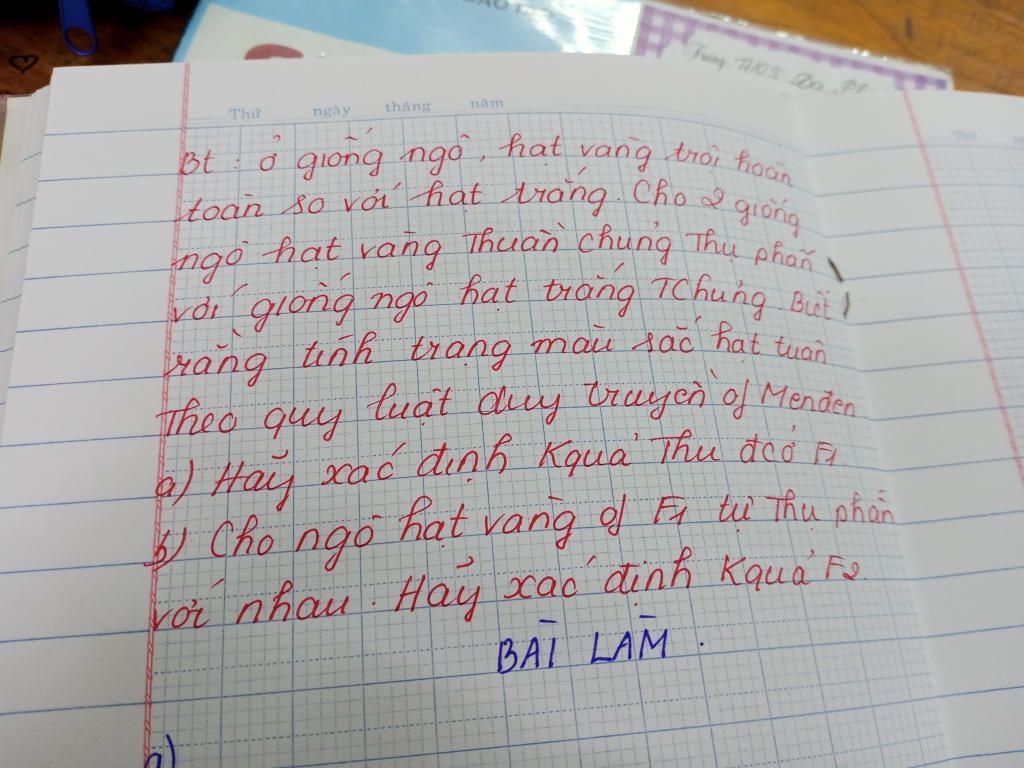 BÁO
Trường THCS
Thứ ngày tháng năm
Bt : ở giống ngô, hạt vàng trội hoàn
toàn so với hạt trắng. Cho 2 giống
ngô hạt vàng Thuần chủng Thụ phấn
với giống ngô hạt trắng TChủng Biết
rằng tính trạng màu sắc hạt tuân
Theo quy luật duy truyền of Menđen
a) Hãy xác định Kquả Thu đcở F1
b) Cho ngô hạt vàng of F1 tự Thụ phấn
với nhau. Hãy xác định Kquả F2
BÀI LÀM .
a)